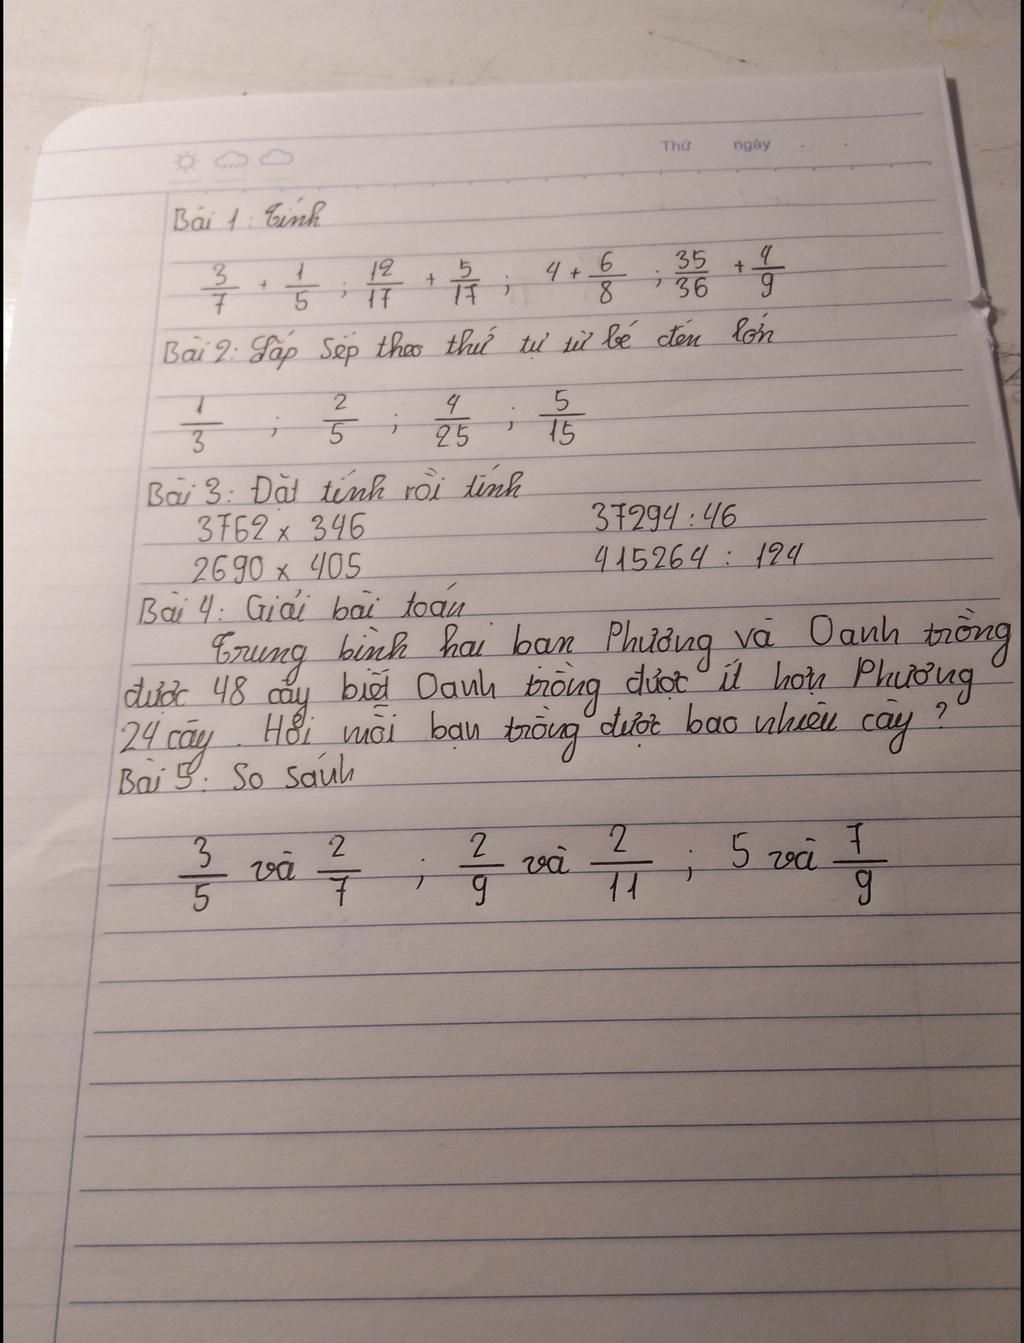 Thứ ngày
Bài 1: Tính
3/7 + 1/5 ; 12/17 + 5/17 ; 4 + 6/8 ; 35/36 + 4/9
Bài 2: Sắp sếp theo thứ tự từ bé đến lớn
1/3 ; 2/5 ; 4/25 ; 5/15
Bài 3: Đặt tính rồi tính
3762 x 346 37294 : 46
2690 x 405 415264 : 124
Bài 4: Giải bài toán
Trung bình hai bạn Phương và Oanh trồng
được 48 cây biết Oanh trồng được ít hơn Phương
24 cây. Hỏi mỗi bạn trồng được bao nhiêu cây ?
Bài 5: So sánh
3/5 và 2/7 ; 2/9 và 2/11 ; 5 và 7/9